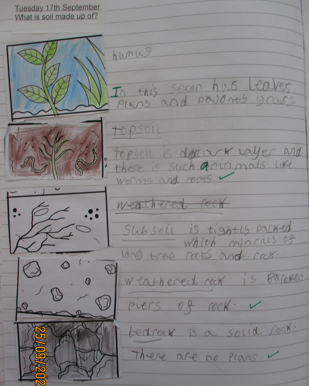 Tuesday 17th September.
What is soil made up of?
humus
In this has Leaves
Plans and grass
topsoil
topsoil is and
there is such animals like
worms and roots
weathered rock
Subsoil is tightly packed
which of
tree roots and rock.
weathered rock is
of rock.
bedrock is a solid rock.
There are no plans
25/09/202